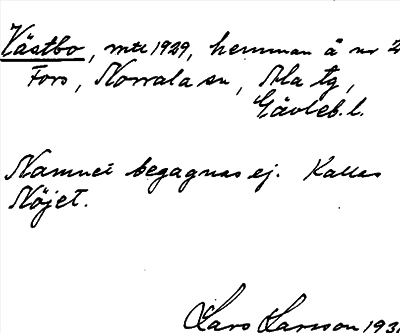 Västbo, mtl 1929, hemman å nr 2
Fors, Norrala sn, Ala tg,
Gävleb. l.
Namnet begagnas ej. Kallas
Nöjet.
Lars Larsson 193